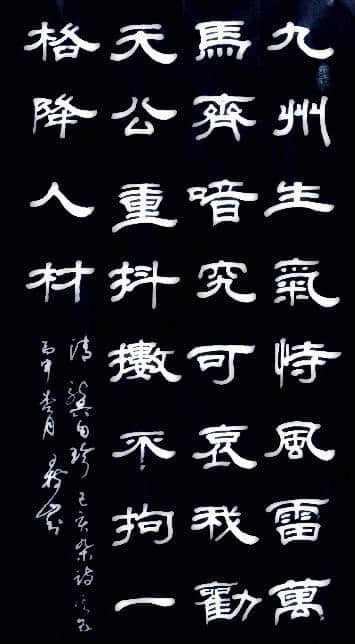 九州生氣恃風雷萬
馬齊喑究可哀我勸
天公重抖擻不拘一
格降人材
清龔自珍己亥杂詩
丙申月